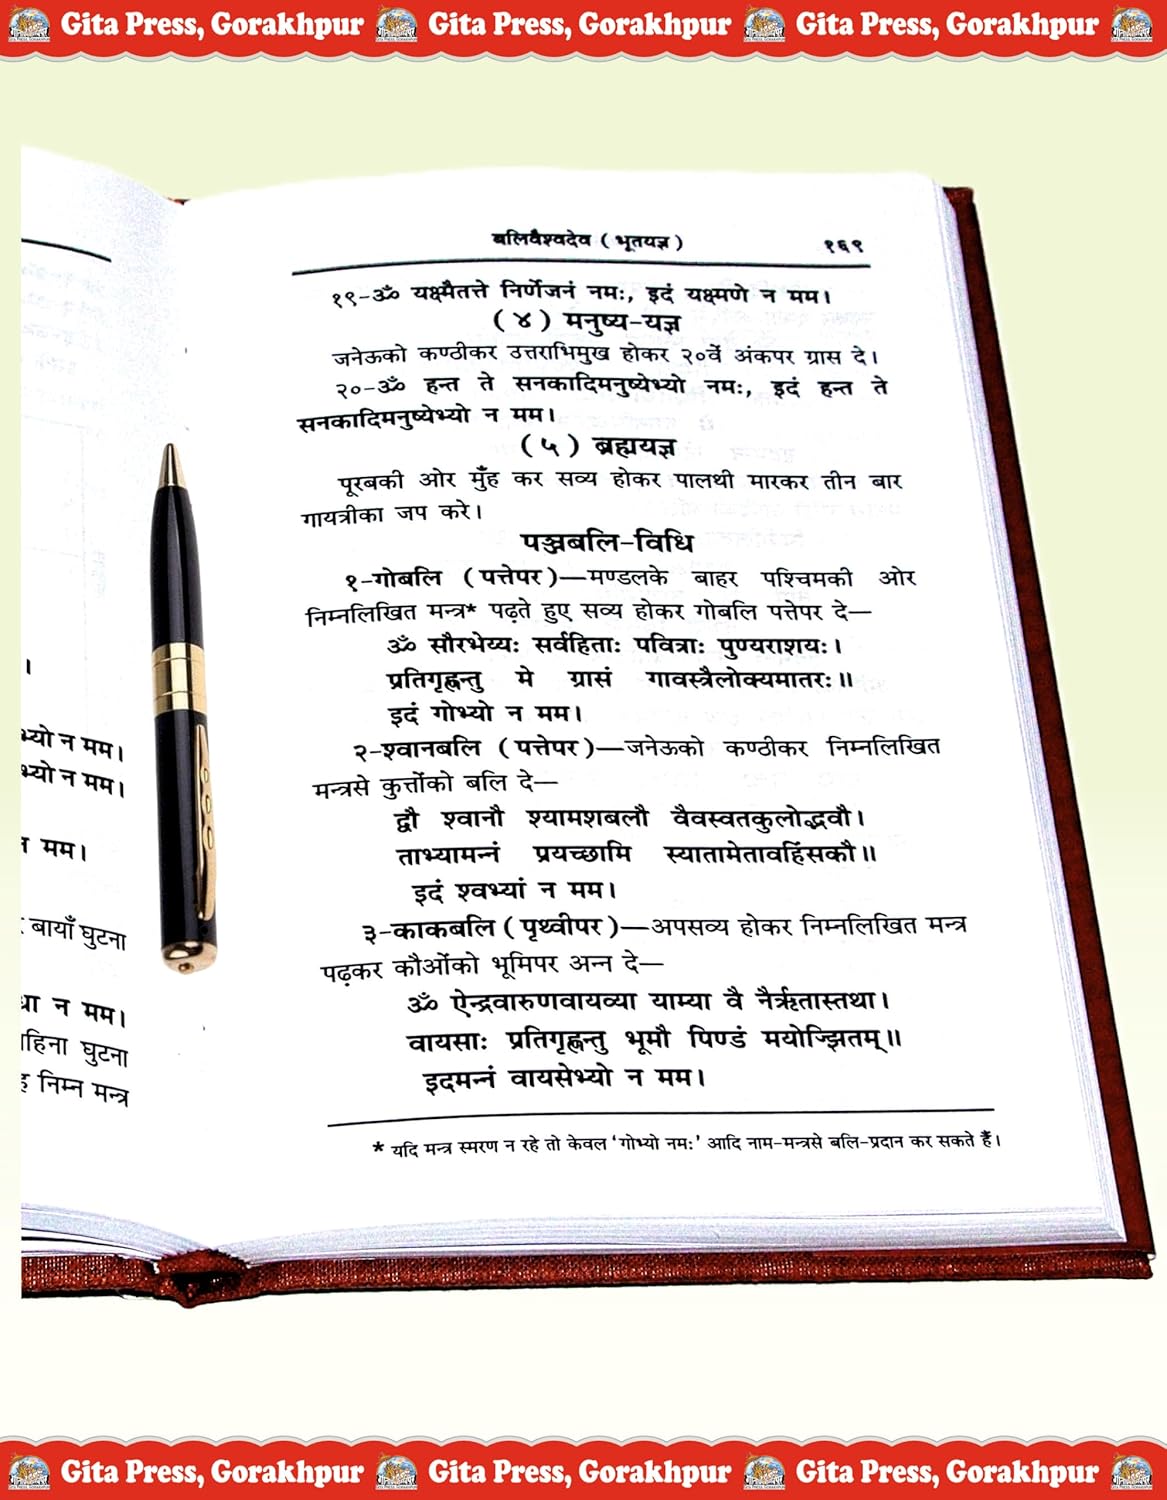 Gita Press, Gorakhpur Gita Press, Gorakhpur Gita Press, Gorakhpur
भ्यो न मम।
भ्यो न मम।
मम।
बायाँ घुटना
न मम।
घुटना
निम्न मन्त्र
बलिवैश्वदेव ( भूतयज्ञ ) १६९
१९-ॐ यक्ष्मैतत्ते निर्णेजनं नमः, इदं यक्ष्मणे न मम।
( ४ ) मनुष्य-यज्ञ
जनेऊको कण्ठीकर उत्तराभिमुख होकर २०वें अंकपर ग्रास दे।
२०-ॐ हन्त ते सनकादिमनुष्येभ्यो नमः, इदं हन्त ते
सनकादिमनुष्येभ्यो न मम।
( ५ ) ब्रह्मयज्ञ
पूरबकी ओर मुँह कर सव्य होकर पालथी मारकर तीन बार
गायत्रीका जप करे।
पञ्चबलि-विधि
१-गोबलि ( पत्तेपर )—मण्डलके बाहर पश्चिमकी ओर
निम्नलिखित मन्त्र* पढ़ते हुए सव्य होकर गोबलि पत्तेपर दे—
ॐ सौरभेय्यः सर्वहिताः पवित्राः पुण्यराशयः।
प्रतिगृह्णन्तु मे ग्रासं गावस्त्रैलोक्यमातरः॥
इदं गोभ्यो न मम।
२-श्वानबलि ( पत्तेपर )—जनेऊको कण्ठीकर निम्नलिखित
मन्त्रसे कुत्तोंको बलि दे—
द्वौ श्वानौ श्यामशबलौ वैवस्वतकुलोद्भवौ।
ताभ्यामन्नं प्रयच्छामि स्यातामेतावहिंसकौ॥
इदं श्वभ्यां न मम।
३-काकबलि ( पृथ्वीपर )—अपसव्य होकर निम्नलिखित मन्त्र
पढ़कर कौओंको भूमिपर अन्न दे—
ॐ ऐन्द्रवारुणवायव्या याम्या वै नैर्ऋतास्तथा।
वायसाः प्रतिगृह्णन्तु भूमौ पिण्डं मयोज्झितम्॥
इदमन्नं वायसेभ्यो न मम।
* यदि मन्त्र स्मरण न रहे तो केवल 'गोभ्यो नमः' आदि नाम-मन्त्रसे बलि-प्रदान कर सकते हैं।
Gita Press, Gorakhpur Gita Press, Gorakhpur Gita Press, Gorakhpur